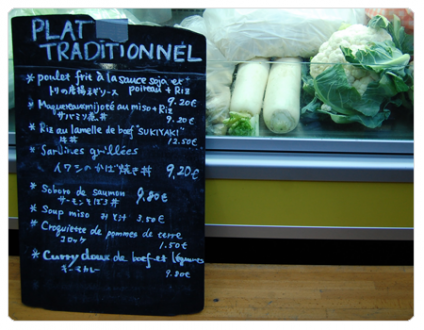 PLAT
TRADITIONNEL
* poulet frit à la sauce soja et
poireau + Riz
9.20€
* Maquereau mijoté au miso + Riz
9.20€
* Riz au lamelle de bœuf "SUKIYAKI"
牛丼 12.50€
* Sardines grillées
イワシのかば焼き丼 9.20€
* Soboro de saumon 9.80€
サーモンそぼろ丼
* Soup miso みそ汁 3.50€
* Croquette de pommes de terre
コロッケ 1.50€
* Curry doux de bœuf et légumes
キーマカレー 9.80€